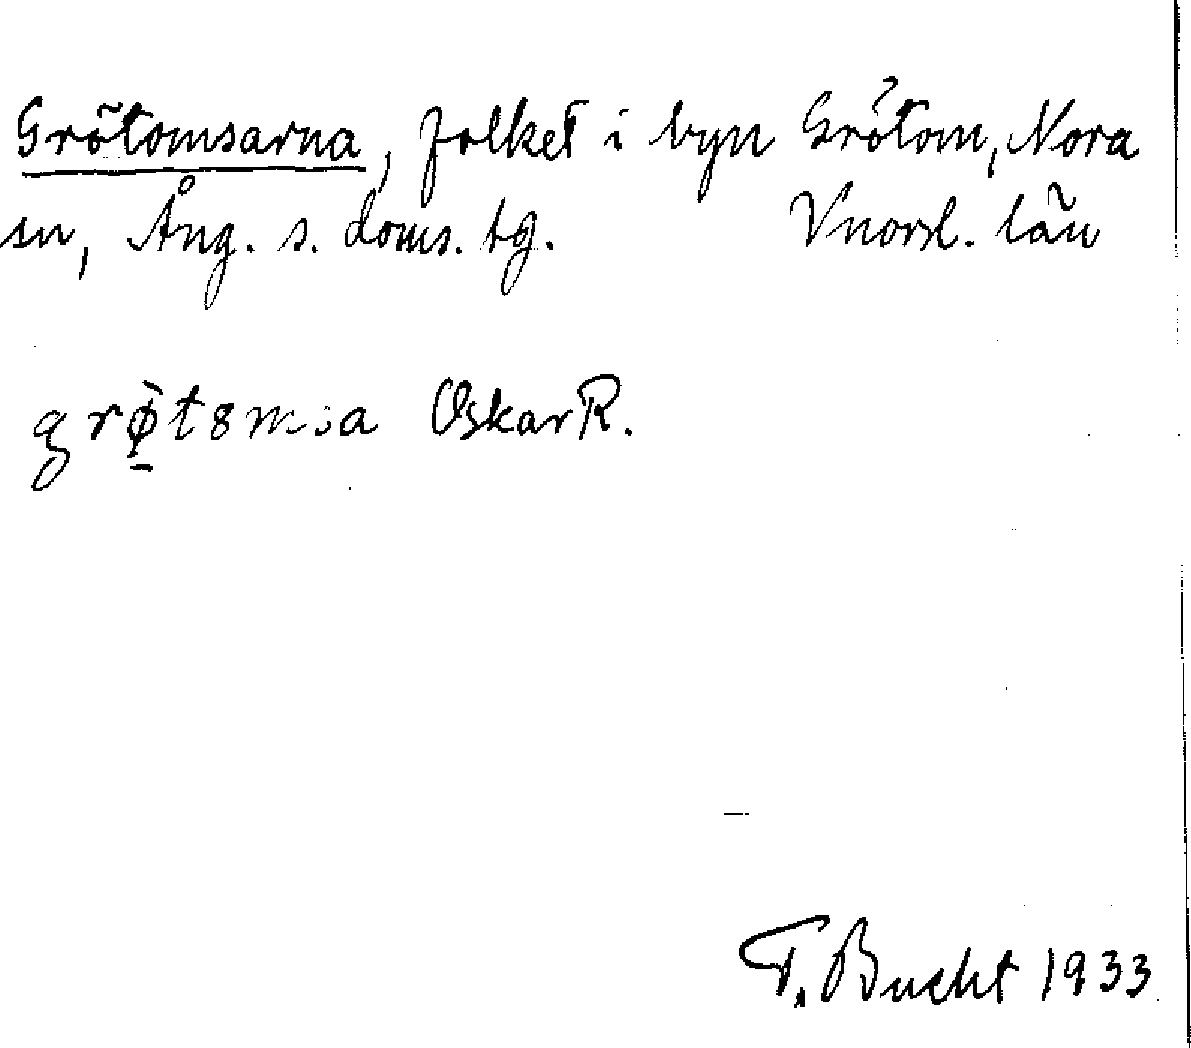 Grötomsarna, folket i byn Grötom, Nora
sn, Ång. s. doms. tg. Vnorrl. län
Oskar R.
T. Bucht 1933